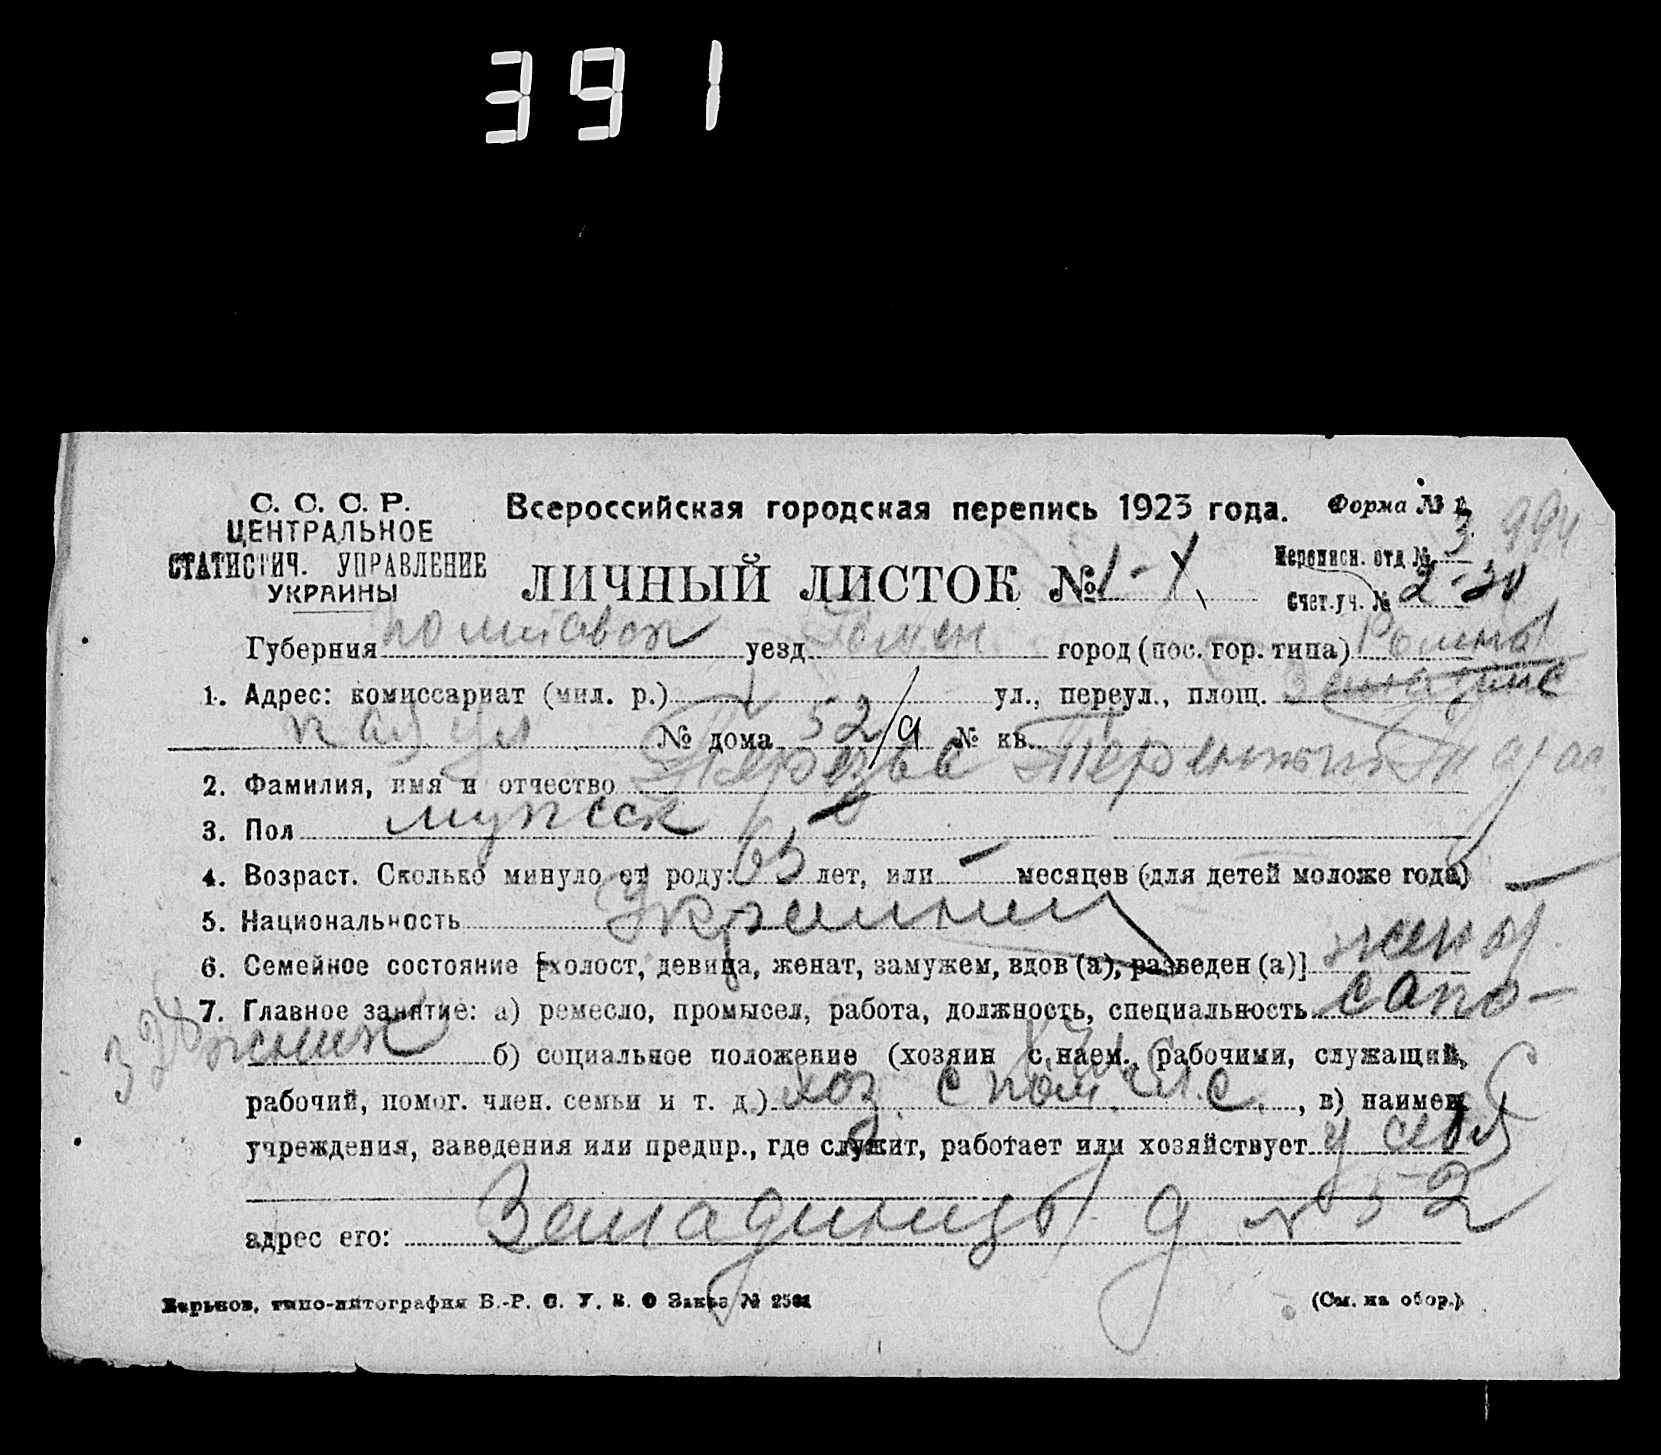 391
С. С. С. Р. Всероссийская городская перепись 1923 года. Форма № 1.
ЦЕНТРАЛЬНОЕ
СТАТИСТИЧ. УПРАВЛЕНИЕ
УКРАИНЫ
ЛИЧНЫЙ ЛИСТОК № 1-
Переписн. отд № 3
Счет. уч. № 2-30
Губерния Полтавск уезд Ромен город (пос. гор. типа) Ромны
1. Адрес: комиссариат (мил. р.) 1 ул., переул., площ.
№ дома 52/9 № кв.
2. Фамилия, имя и отчество
3. Пол мужеск
4. Возраст. Сколько минуло от роду: 63 лет, или — месяцев (для детей моложе года) —
5. Национальность Украинец
6. Семейное состояние [холост, девица, женат, замужем, вдов (а), разведен (а)] женат
7. Главное занятие: а) ремесло, промысел, работа, должность, специальность сапо-
жник б) социальное положение (хозяин с наем. рабочими, служащий,
рабочий, помог. член. семьи и т. д.) хоз с пом. чл. с. , в) наимен
учреждения, заведения или предпр., где служит, работает или хозяйствует у себя
адрес его: д № 52
328
Харьков, типо-литография В.-Р. С. У. К. О Заказ № 2501 (См. на обор.)